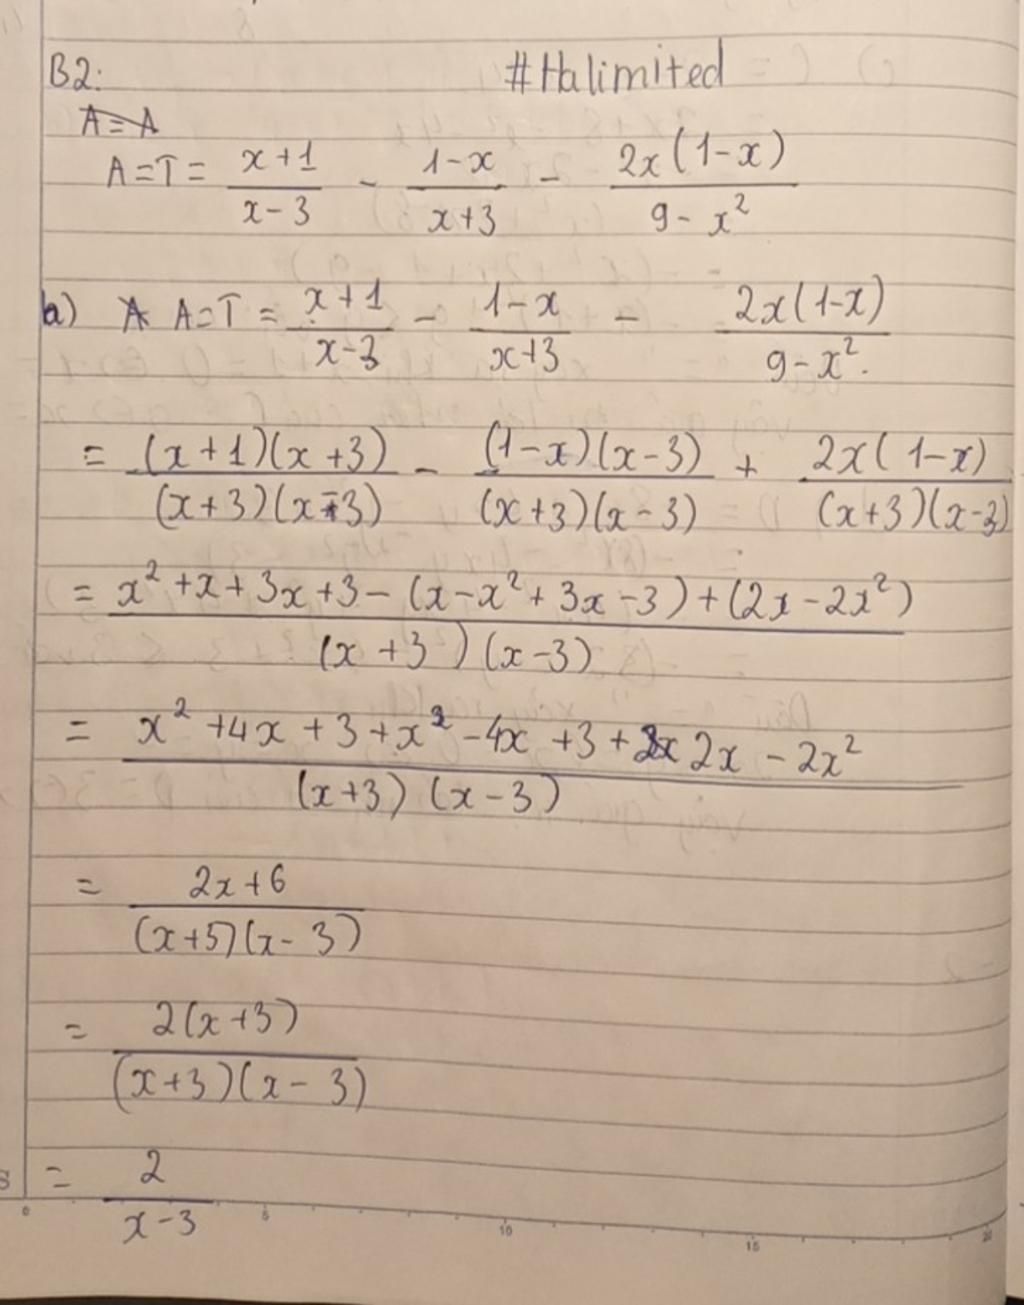 B2: #Halimited
A=A
A=T= \frac{x+1}{x-3} - \frac{1-x}{x+3} - \frac{2x(1-x)}{9-x^2}
a) A A=T = \frac{x+1}{x-3} - \frac{1-x}{x+3} - \frac{2x(1-x)}{9-x^2}.
= \frac{(x+1)(x+3)}{(x+3)(x-3)} - \frac{(1-x)(x-3)}{(x+3)(x-3)} + \frac{2x(1-x)}{(x+3)(x-3)}
= \frac{x^2+x+3x+3-(x-x^2+3x-3)+(2x-2x^2)}{(x+3)(x-3)}
= \frac{x^2+4x+3+x^2-4x+3+2x-2x^2}{(x+3)(x-3)}
= \frac{2x+6}{(x+3)(x-3)}
= \frac{2(x+3)}{(x+3)(x-3)}
= \frac{2}{x-3}
0 5 10 15 20